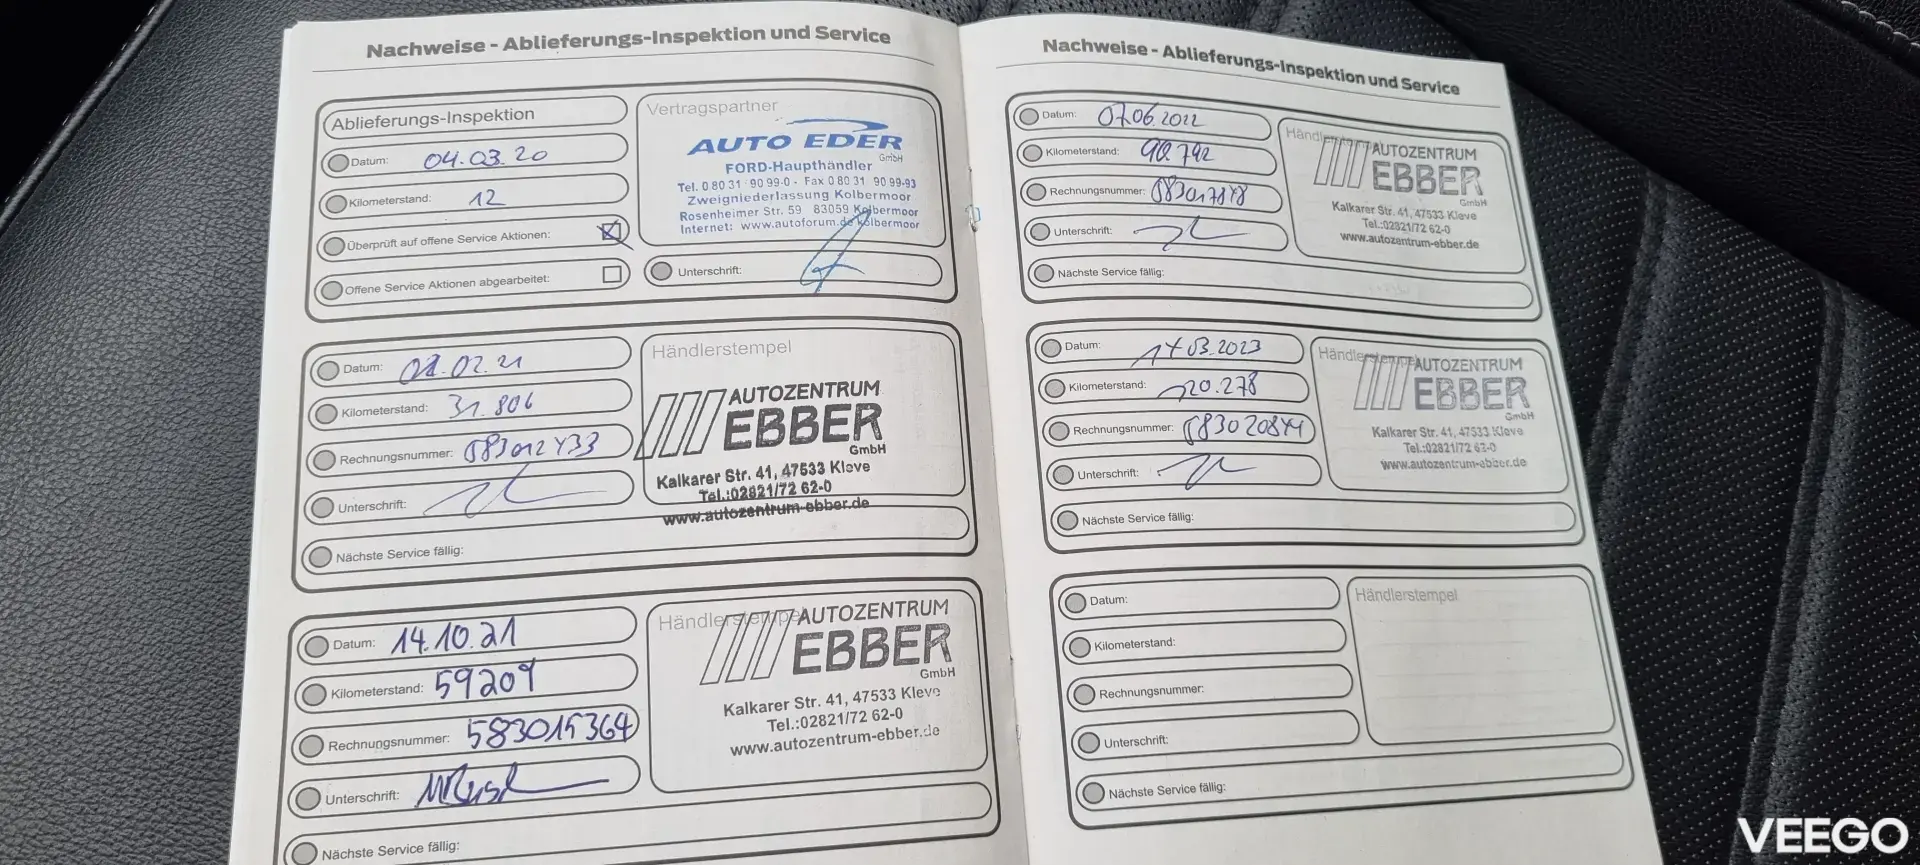 Nachweise - Ablieferungs-Inspektion und Service
Ablieferungs-Inspektion
Datum: 04.03.20
Kilometerstand: 12
Überprüft auf offene Service Aktionen:
Offene Service Aktionen abgearbeitet:
Vertragspartner
AUTO EDER
GmbH
FORD-Haupthändler
Tel. 0 80 31 90 99-0 - Fax 0 80 31 90 99-93
Zweigniederlassung Kolbermoor
Rosenheimer Str. 59 83059 Kolbermoor
Internet: www.autoforum.de/kolbermoor
Unterschrift:
Datum: 02.21
Kilometerstand: 31.806
Rechnungsnummer: 583012433
Unterschrift:
Nächste Service fällig:
Händlerstempel
AUTOZENTRUM
EBBER
GmbH
Kalkarer Str. 41, 47533 Kleve
Tel.:02821/72 62-0
www.autozentrum-ebber.de
Datum: 14.10.21
Kilometerstand: 59209
Rechnungsnummer: 583015364
Unterschrift:
Nächste Service fällig:
Händlerstempel
AUTOZENTRUM
EBBER
GmbH
Kalkarer Str. 41, 47533 Kleve
Tel.:02821/72 62-0
www.autozentrum-ebber.de
Nachweise - Ablieferungs-Inspektion und Service
Datum: 07.06.2022
Kilometerstand: 90.792
Rechnungsnummer: 583017848
Unterschrift:
Nächste Service fällig:
Händlerstempel
AUTOZENTRUM
EBBER
GmbH
Kalkarer Str. 41, 47533 Kleve
Tel.:02821/72 62-0
www.autozentrum-ebber.de
Datum: 14.03.2023
Kilometerstand: 120.278
Rechnungsnummer: 583020844
Unterschrift:
Nächste Service fällig:
Händlerstempel
AUTOZENTRUM
EBBER
GmbH
Kalkarer Str. 41, 47533 Kleve
Tel.:02821/72 62-0
www.autozentrum-ebber.de
Datum:
Kilometerstand:
Rechnungsnummer:
Unterschrift:
Nächste Service fällig:
Händlerstempel
VEEGO